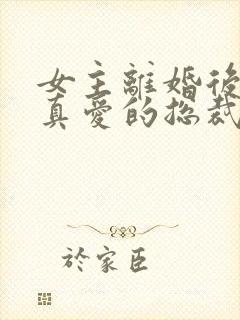 女主離婚後
真愛的总裁
於家臣